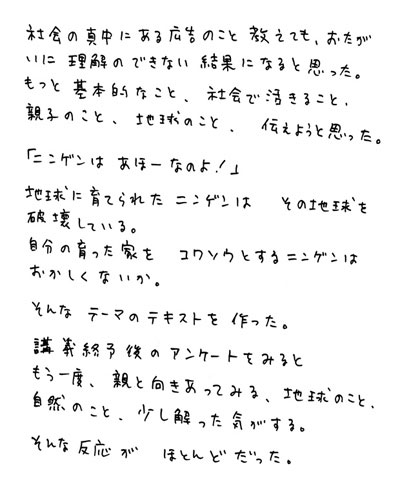 社会の真中にある広告のこと 教えても、おたが
いに 理解の できない 結果に なると 思った。
もっと 基本的なこと、社会で 活きること、
親子のこと、地球のこと、 伝えようと思った。
「ニンゲンは あほーなのよ!」
地球に育てられた ニンゲンは その地球を
破壊している。
自分の育った家を コワソウとするニンゲンは
おかしくないか。
そんな テーマのテキストを 作った。
講義終予後のアンケートをみると
もう一度、親と向きあってみる、地球のこと、
自然のこと、少し解った気がする。
そんな反応が ほとんどだった。